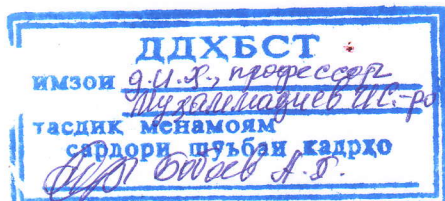 ДДҲБСТ
имзои д.и.х., профессор
Муҳаммадиев И.С.-ро
тасдиқ менамоям
сардори шуъбаи кадрҳо
Бобоев А.Г.